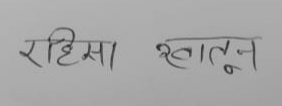 रहिसा खातून